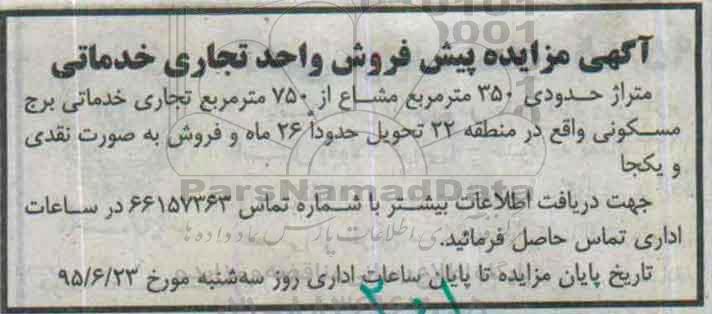 آگهی مزایده پیش فروش واحد تجاری خدماتی
متراژ حدودی ۳۵۰ مترمربع مشاع از ۷۵۰ مترمربع تجاری خدماتی برج
مسکونی واقع در منطقه ۲۲ تحویل حدوداً ۲۶ ماه و فروش به صورت نقدی
و یکجا
جهت دریافت اطلاعات بیشتر با شماره تماس ۶۶۱۵۷۳۶۳ در ساعات
اداری تماس حاصل فرمائید.
تاریخ پایان مزایده تا پایان ساعات اداری روز سه‌شنبه مورخ ۹۵/۶/۲۳
ParsNamadData